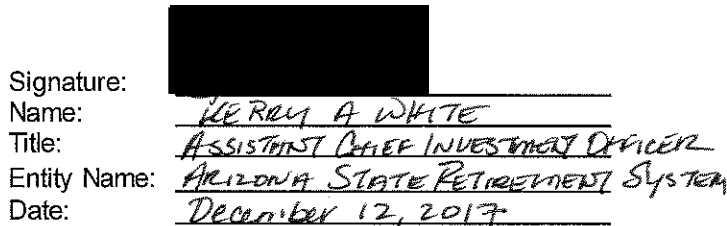 Signature:
Name: KERRY A WHITE
Title: ASSISTANT CHIEF INVESTMENT OFFICER
Entity Name: ARIZONA STATE RETIREMENT SYSTEM
Date: December 12, 2017